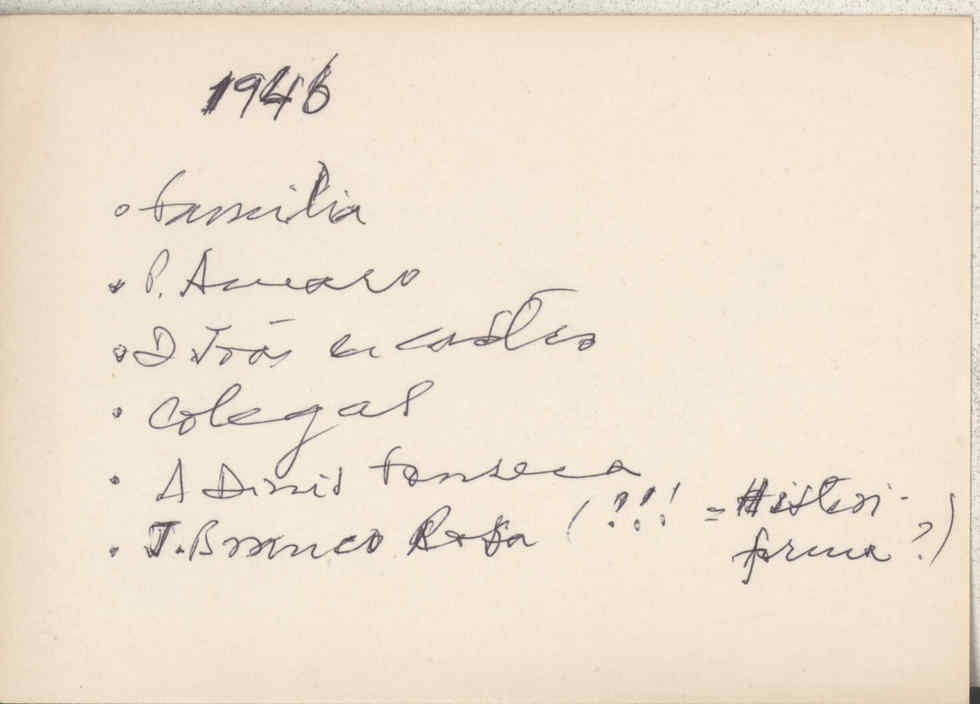 1946
• família
• P. Amaro
• D João de Castro
• colegas
• A Dinis Fonseca
• J. Branco Rosa (??!! = Histeri-
forma?)